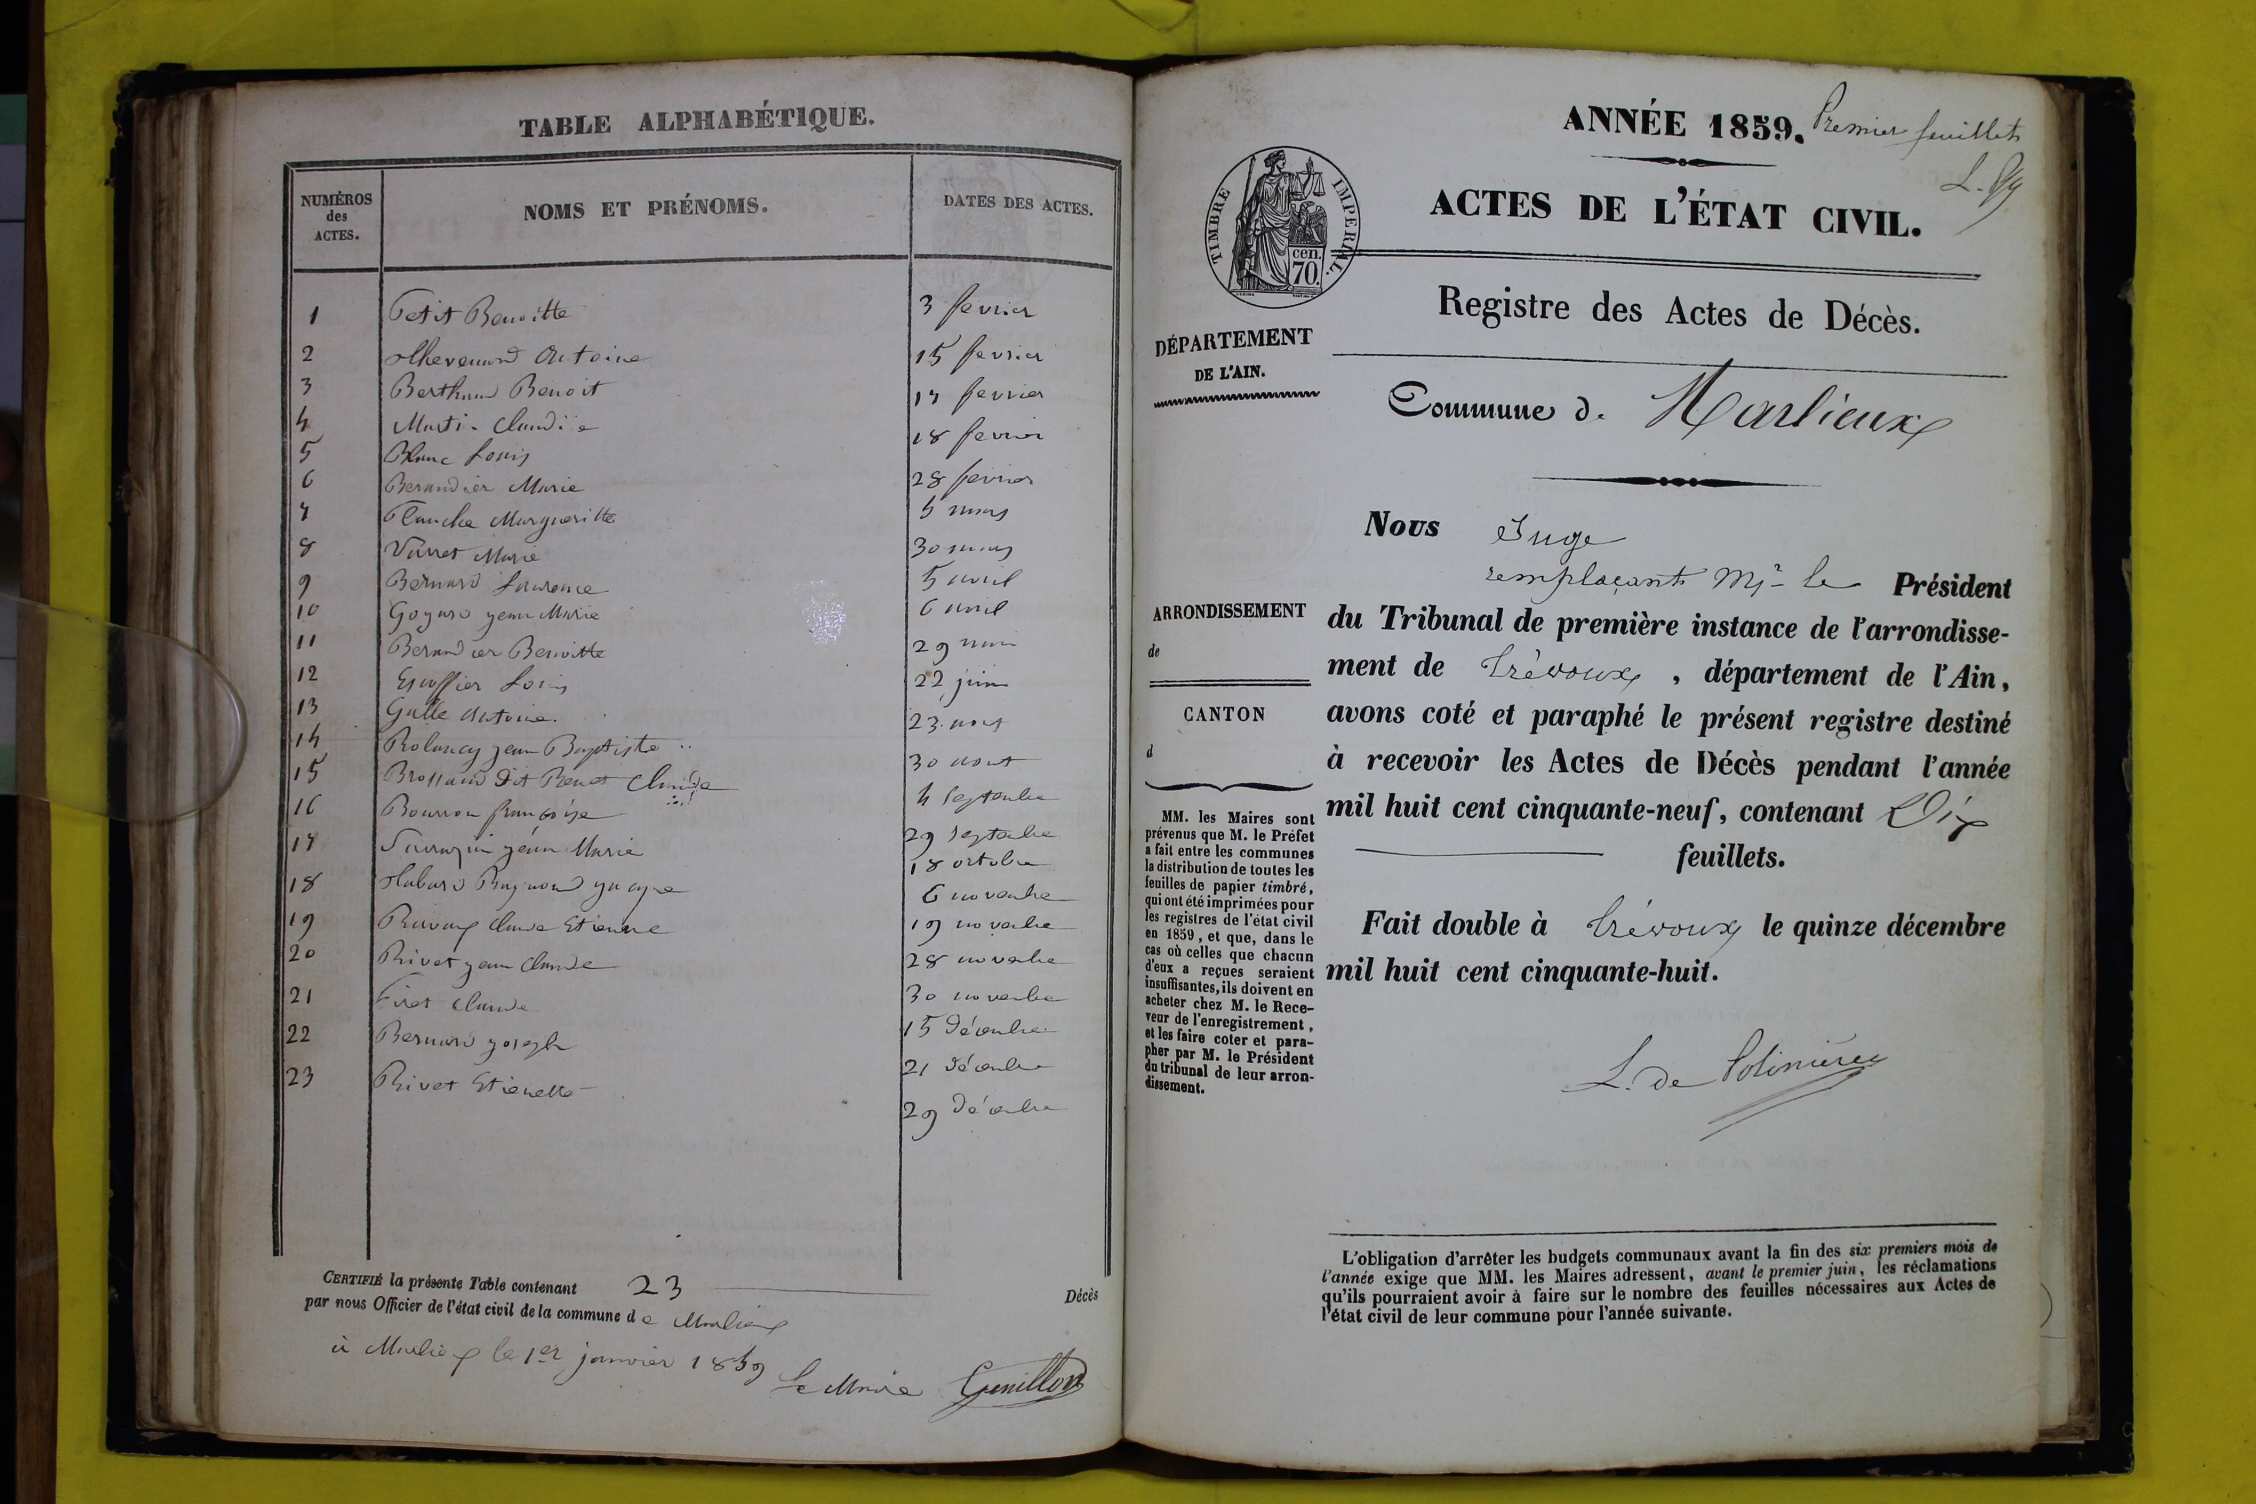 TABLE ALPHABÉTIQUE.
NUMÉROS des ACTES.
NOMS ET PRÉNOMS.
DATES DES ACTES.
1 Petit Benoitte 3 fevrier
2 Antoine 15 fevrier
3 Benoit 17 fevrier
4 18 fevrier
5 Blanc Louis 28 fevrier
6 Beraudier Marie 5 mars
7 Planche Margueritte 30 mars
8 Marie 5 avril
9 Bernard Laurence 6 avril
10 Goyard jean Marie 29 mai
11 Beraudier Benoitte 22 juin
12 Escoffier Louis 23 aout
13 Antoine. 30 aout
14 jean Baptiste 4 Septembre
15 dit Claude 29 Septembre
16 Bourron françoise 18 octobre
17 Sarrazin jean Marie 6 novembre
18 19 novembre
19 Claude Etienne 28 novembre
20 Rivet jean Claude 30 novembre
21 Claude 15 décembre
22 Bernard joseph 21 décembre
23 Rivet Etienette 29 décembre
CERTIFIÉ la présente Table contenant 23 Décès
par nous Officier de l'état civil de la commune de Marlieux
à Marlieux le 1er janvier 1859
Le Maire Genillon
ANNÉE 1859.
Premier feuillet
ACTES DE L'ÉTAT CIVIL.
TIMBRE IMPERIAL.
cen.
70.
Registre des Actes de Décès.
DÉPARTEMENT
DE L'AIN.
Commune de Marlieux
Nous Juge
remplaçant Mr le Président
du Tribunal de première instance de l'arrondisse-
ment de Trévoux, département de l'Ain,
avons coté et paraphé le présent registre destiné
à recevoir les Actes de Décès pendant l'année
mil huit cent cinquante-neuf, contenant Dix
feuillets.
Fait double à Trévoux le quinze décembre
mil huit cent cinquante-huit.
L. de Polinière
ARRONDISSEMENT
de
CANTON
d
MM. les Maires sont
prévenus que M. le Préfet
a fait entre les communes
la distribution de toutes les
feuilles de papier timbré,
qui ont été imprimées pour
les registres de l'état civil
en 1859, et que, dans le
cas où celles que chacun
d'eux a reçues seraient
insuffisantes, ils doivent en
acheter chez M. le Rece-
veur de l'enregistrement,
et les faire coter et para-
pher par M. le Président
du tribunal de leur arron-
dissement.
L'obligation d'arrêter les budgets communaux avant la fin des six premiers mois de
l'année exige que MM. les Maires adressent, avant le premier juin, les réclamations
qu'ils pourraient avoir à faire sur le nombre des feuilles nécessaires aux Actes de
l'état civil de leur commune pour l'année suivante.